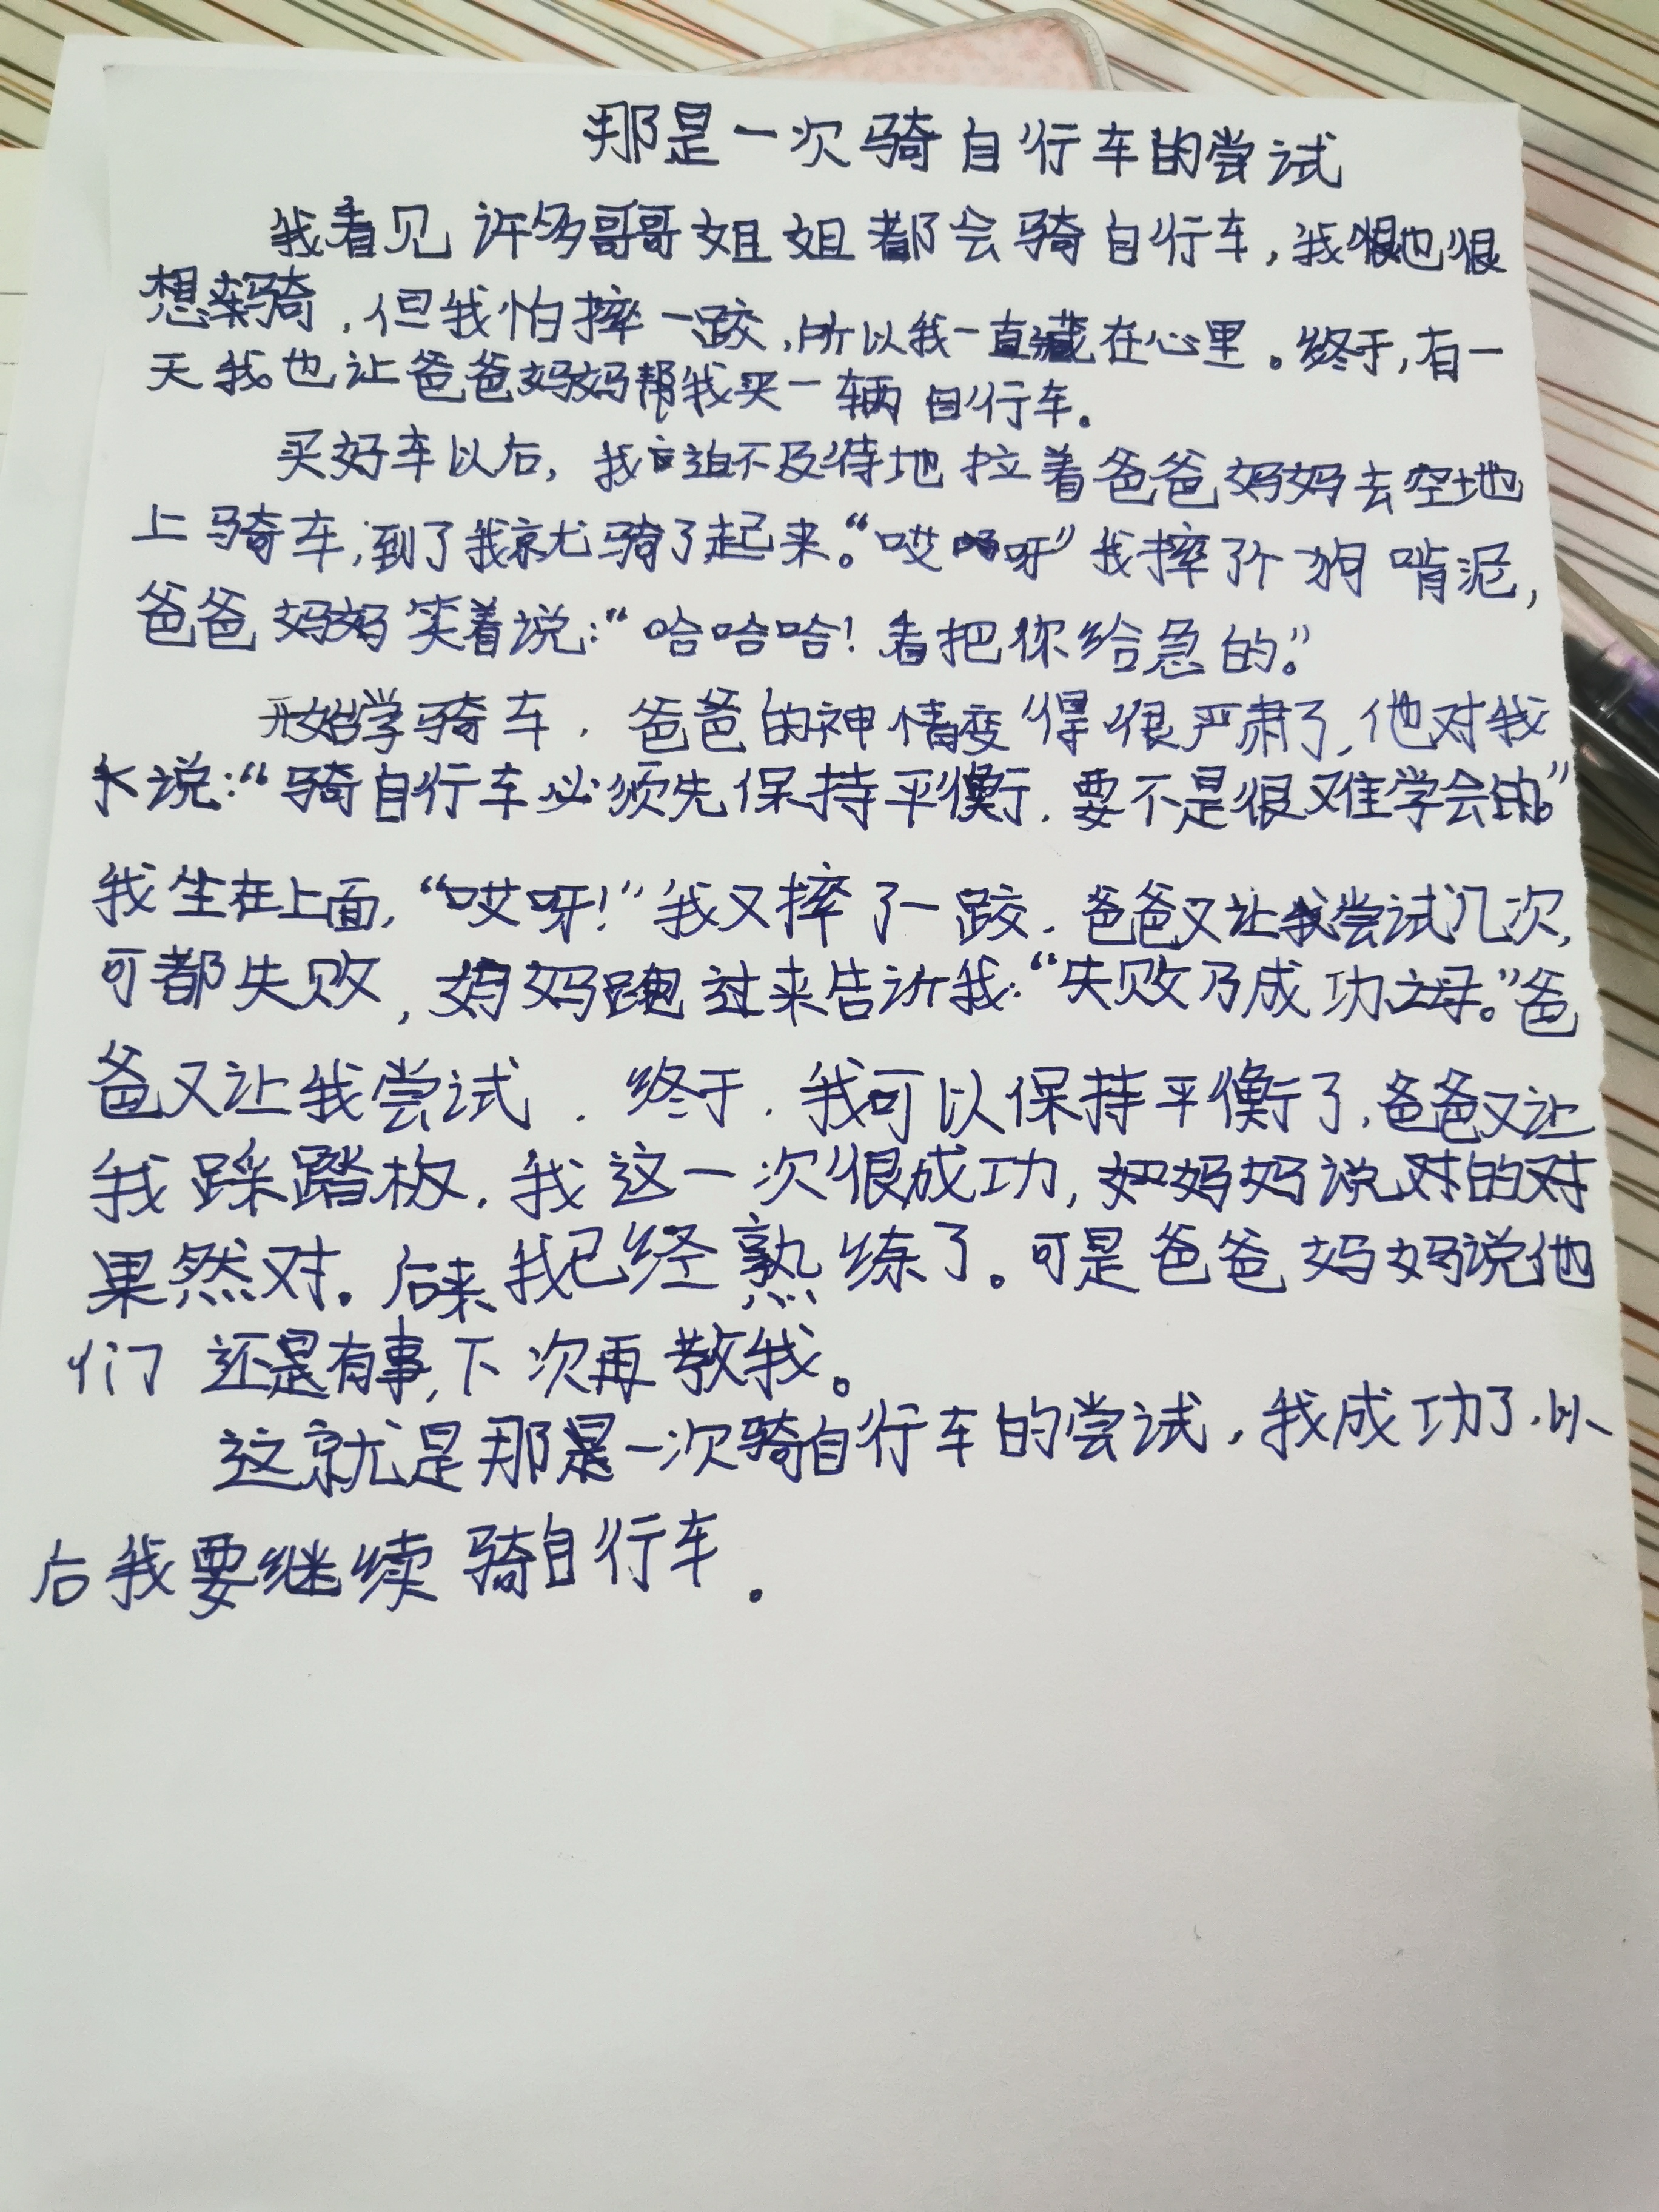 那是一次骑自行车的尝试
我看见许多哥哥姐姐都会骑自行车，我也很
想骑，但我怕摔一跤，所以我一直藏在心里。终于，有一
天我也让爸爸妈妈帮我买一辆自行车。
买好车以后，我迫不及待地拉着爸爸妈妈去空地
上骑车，到了我就骑了起来。“哎呀”我摔了个狗啃泥，
爸爸妈妈笑着说：“哈哈哈！看把你给急的。”
开始学骑车，爸爸的神情变得很严肃了，他对我
说：“骑自行车必须先保持平衡，要不是很难学会的。”
我坐在上面，“哎呀！”我又摔了一跤，爸爸又让我尝试几次，
可都失败，妈妈跑过来告诉我：“失败乃成功之母。”爸
爸又让我尝试，终于，我可以保持平衡了，爸爸又让
我踩踏板，我这一次很成功，妈妈说对的对
果然对。后来我已经熟练了。可是爸爸妈妈说他
们还是有事，下次再教我。
这就是那一次骑自行车的尝试，我成功了，以
后我要继续骑自行车．